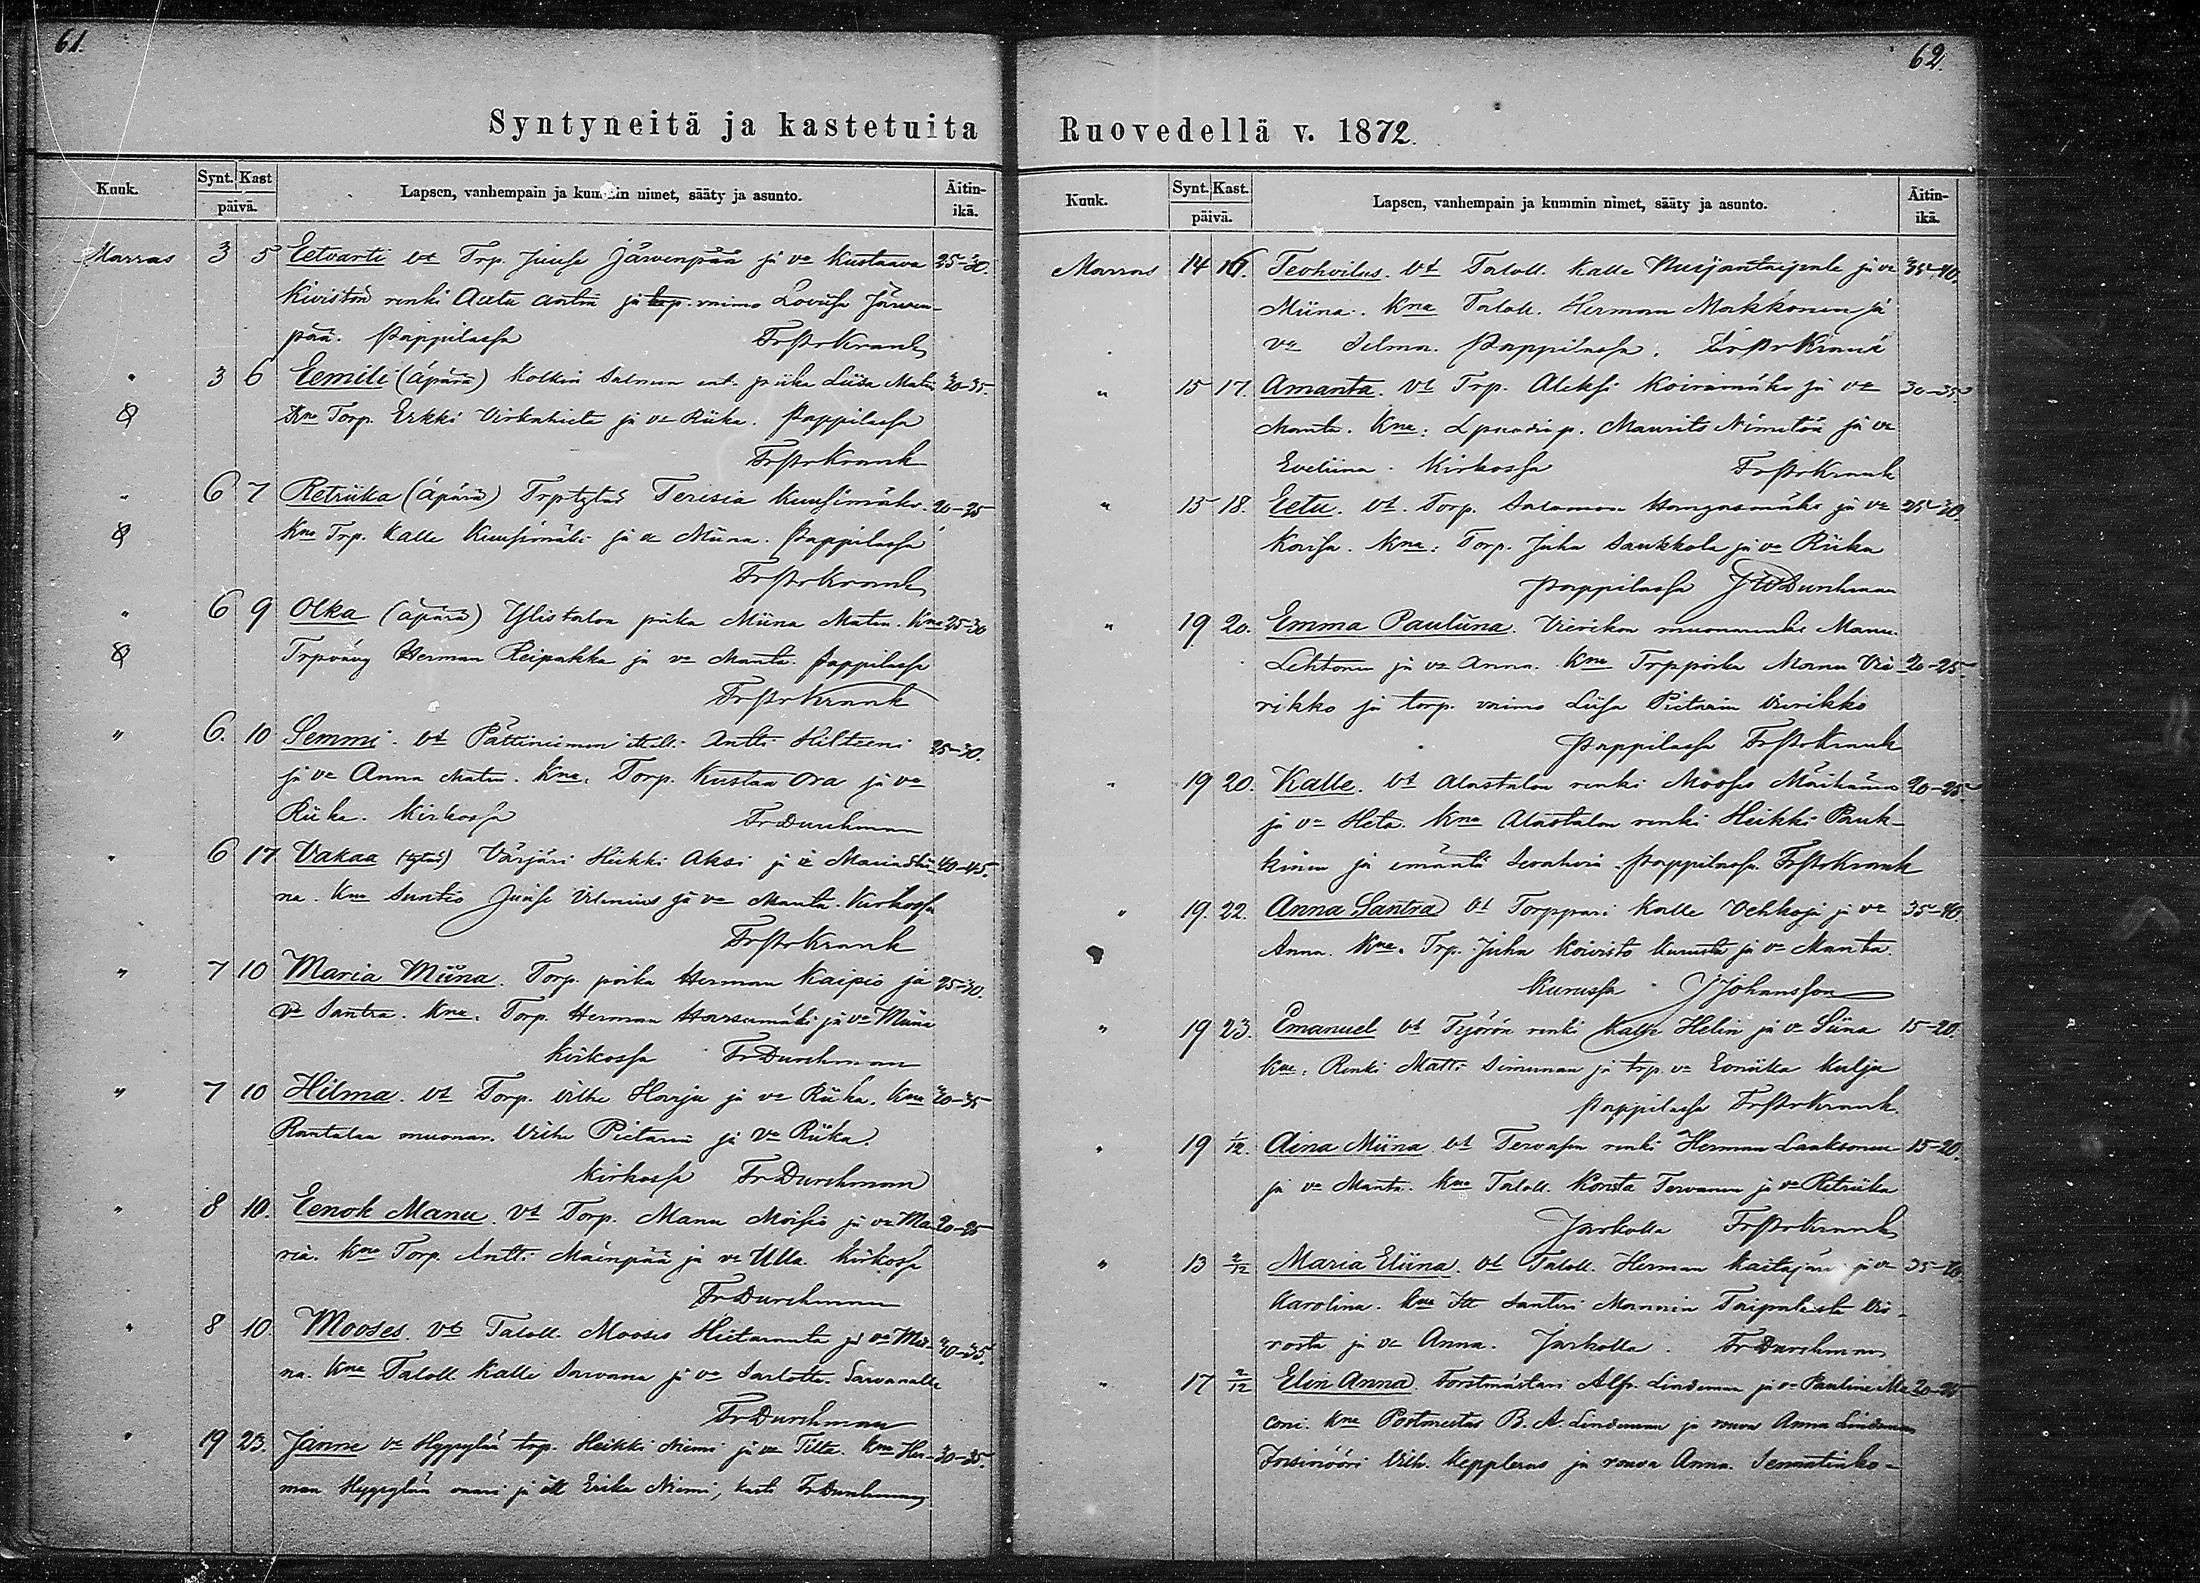 61.
Syntyneitä ja kastetuita
Kuuk.
Synt. Kast
päivä.
Lapsen, vanhempain ja kummin nimet, sääty ja asunto.
Äitin-
ikä.
Marras 3 5 Eetvarti vt Trp. Juuse Järvenpää ja va Kustaava 25-30.
Kiviston renki Aatu Antin ja trp. vaimo Loviisa Järven-
pää. Pappilassa Fr Pr Krank
" 3 6 Eemili (äpärä) Kolkin Salmen piika Liisa Matin 30-35.
Kne Torp. Erkki Virkahieta ja va Riika. Pappilassa
Fr Pr Krank
" 6 7 Retriika (äpärä) Trptytär Teresia Kuusimäki 20-25
Kne Trp. Kalle Kuusimäki ja va Miina. Pappilassa
Fr Pr Krank
" 6 9 Olka (äpärä) Ylistalon piika Miina Matin. Kne 25-30
Trpvävy Herman Reipakka ja va Manta. Pappilassa
Fr Pr Krank
" 6. 10 Semmi. vt Pättiniemen itell. Antti Hilteeni 25-30.
ja va Anna Matin. Kne. Torp. Kustaa Ora ja va
Riika. Kirkossa Fr Durchman
" 6 17 Vakaa (tytär) Värjäri Heikki Aksi ja va Maria Stii- 40-45.
na. Kne Suntio Juuse Vilenius ja va Manta. Kirkossa
Fr Pr Krank
" 7 10 Maria Miina. Torp. poika Herman Kaipio ja 25-30.
va Santra. Kne. Torp. Herman Harsumäki ja va Miina
Kirkossa Fr Durchman
" 7 10 Hilma. vt Torp. Vilhe Harju ja va Riika. Kne 30-35
Rantalan muonar. Vilhe Pietarin ja va Riika.
Kirkossa Fr Durchman
" 8 10. Eenok Manu. vt Torp. Manu Moisio ja va Ma- 20-25
ria. Kne Torp. Antti Mäenpää ja va Ulla. Kirkossa
Fr Durchman
" 8 10. Mooses. vt Taloll. Mooses Hietaranta ja va Mii-
na. Kne Taloll. Kalle Sarvana ja va Sarlotta. Sarvanalla
Fr Durchman
" 19 23. Janne vt Hyyrylän trp. Heikki Niemi ja va Tilta. Kne Her- 30-35.
man Hyyrylän vaari ja itt Erika Niemi, kast. Fr Durchman
62.
Ruovedellä v. 1872.
Kuuk.
Synt. Kast.
päivä.
Lapsen, vanhempain ja kummin nimet, sääty ja asunto.
Äitin-
ikä.
Marras 14 16. Teohvilus. vt Taloll. Kalle Murjantaipale ja va 35-40.
Miina. Kne Taloll. Herman Makkonen ja
va Selma. Pappilassa. Fr Pr Krank
" 15 17. Amanta. vt Trp. Aleksi Koiramäki ja va 30-35
Manta. Kne: Maurits Nimetön ja va
Eveliina. Kirkossa Fr Pr Krank
" 15 18. Eetu. vt. Torp. Salomon Hangasmäki ja va 25-30.
Kaisa. Kne: Torp. Juha Saukkola ja va Riika
Pappilassa J W Durchman
" 19. 20. Emma Pauliina. Vierikon muonarenki Manu
Lehtonen ja va Anna. Kne Trppoika Manu Vie- 20-25
rikko ja torp. vaimo Liisa Pietarin Vierikko
Pappilassa Fr Pr Krank
" 19 20. Kalle. vt Alastalon renki Mooses Mäikäinen 20-25
ja va Heta. Kne Alastalon renki Heikki Pauk-
kinen ja emäntä Serahvia. Pappilassa. Fr Pr Krank
" 19. 22. Anna Santra vt Torppari Kalle Vehkoja ja va 35-40
Anna. Kne. Trp. Juha Koivisto Kurusta ja va Manta.
Kurussa J Johansson
" 19 23. Emanuel vt Työrön renki Kalle Helin ja va Siina 15-20.
Kne: Renki Matti Simunan ja trp. va Eeriika Kulju
Pappilassa Fr Pr Krank.
" 19 1/12. Aina Miina. vt Tervasen renki Herman Laaksonen 15-20.
ja va Manta. Kne Taloll. Konsta Tervanen ja va Retriika
Jäskolla Fr Pr Krank
" 13 2/12 Maria Eliina. vt Taloll. Herman Kaitajärvi ja va 35-40.
Karolina. Kne Itt Santeri Mannin Taipaleesta Vir-
rosta ja va Anna. Jäskolla. Fr Durchman
" 17 2/12 Elin Anna. Forstmästari Alfr. Lindeman ja va Pauline Ma- 20-25
coni. Kne Postmestari B. A. Lindeman ja rouva Anna Lindeman
Insinööri Vilh. Kepplerus ja rouva Anna.